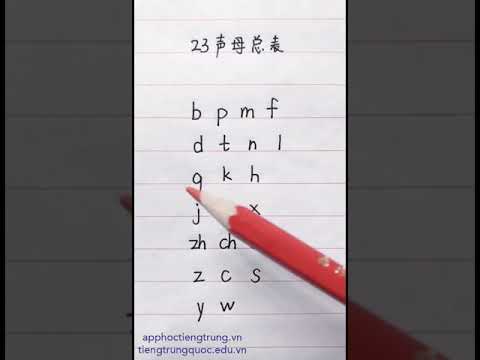 23声母总表
b p m f
d t n l
g k h
j x
zh ch
z c s
y w
apphoctiengtrung.vn
tiengtrungquoc.edu.vn